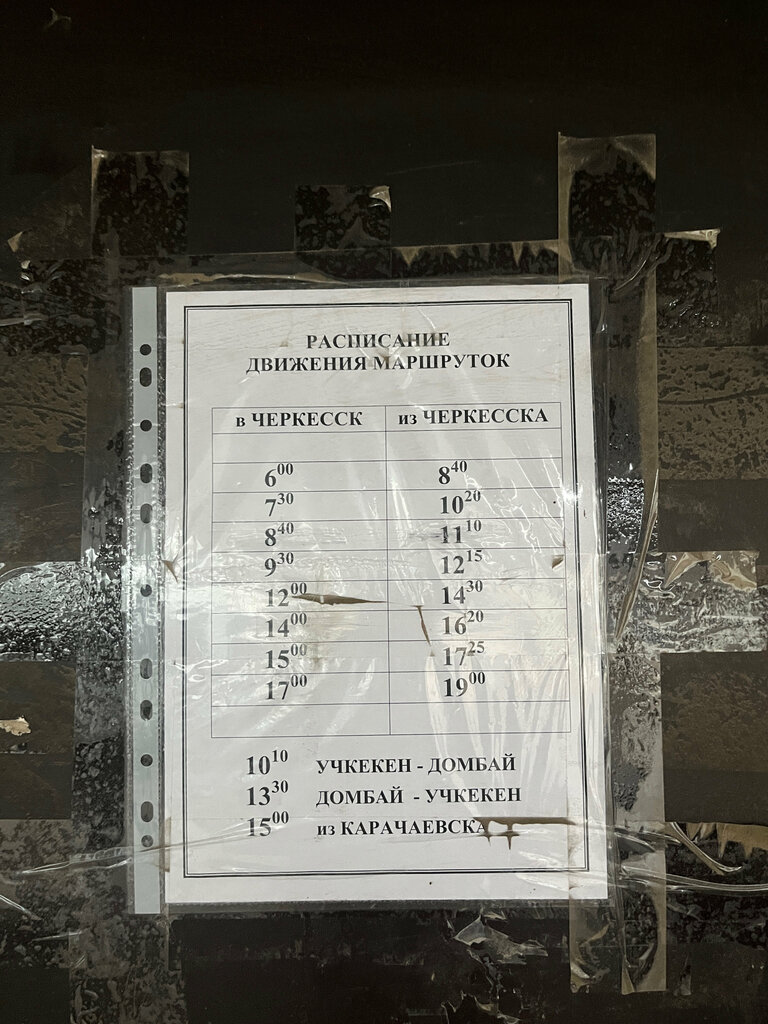 РАСПИСАНИЕ
ДВИЖЕНИЯ МАРШРУТОК
в ЧЕРКЕССК из ЧЕРКЕССКА
6⁰⁰ 8⁴⁰
7³⁰ 10²⁰
8⁴⁰ 11¹⁰
9³⁰ 12¹⁵
12⁰⁰ 14³⁰
14⁰⁰ 16²⁰
15⁰⁰ 17²⁵
17⁰⁰ 19⁰⁰
10¹⁰ УЧКЕКЕН - ДОМБАЙ
13³⁰ ДОМБАЙ - УЧКЕКЕН
15⁰⁰ из КАРАЧАЕВСКА